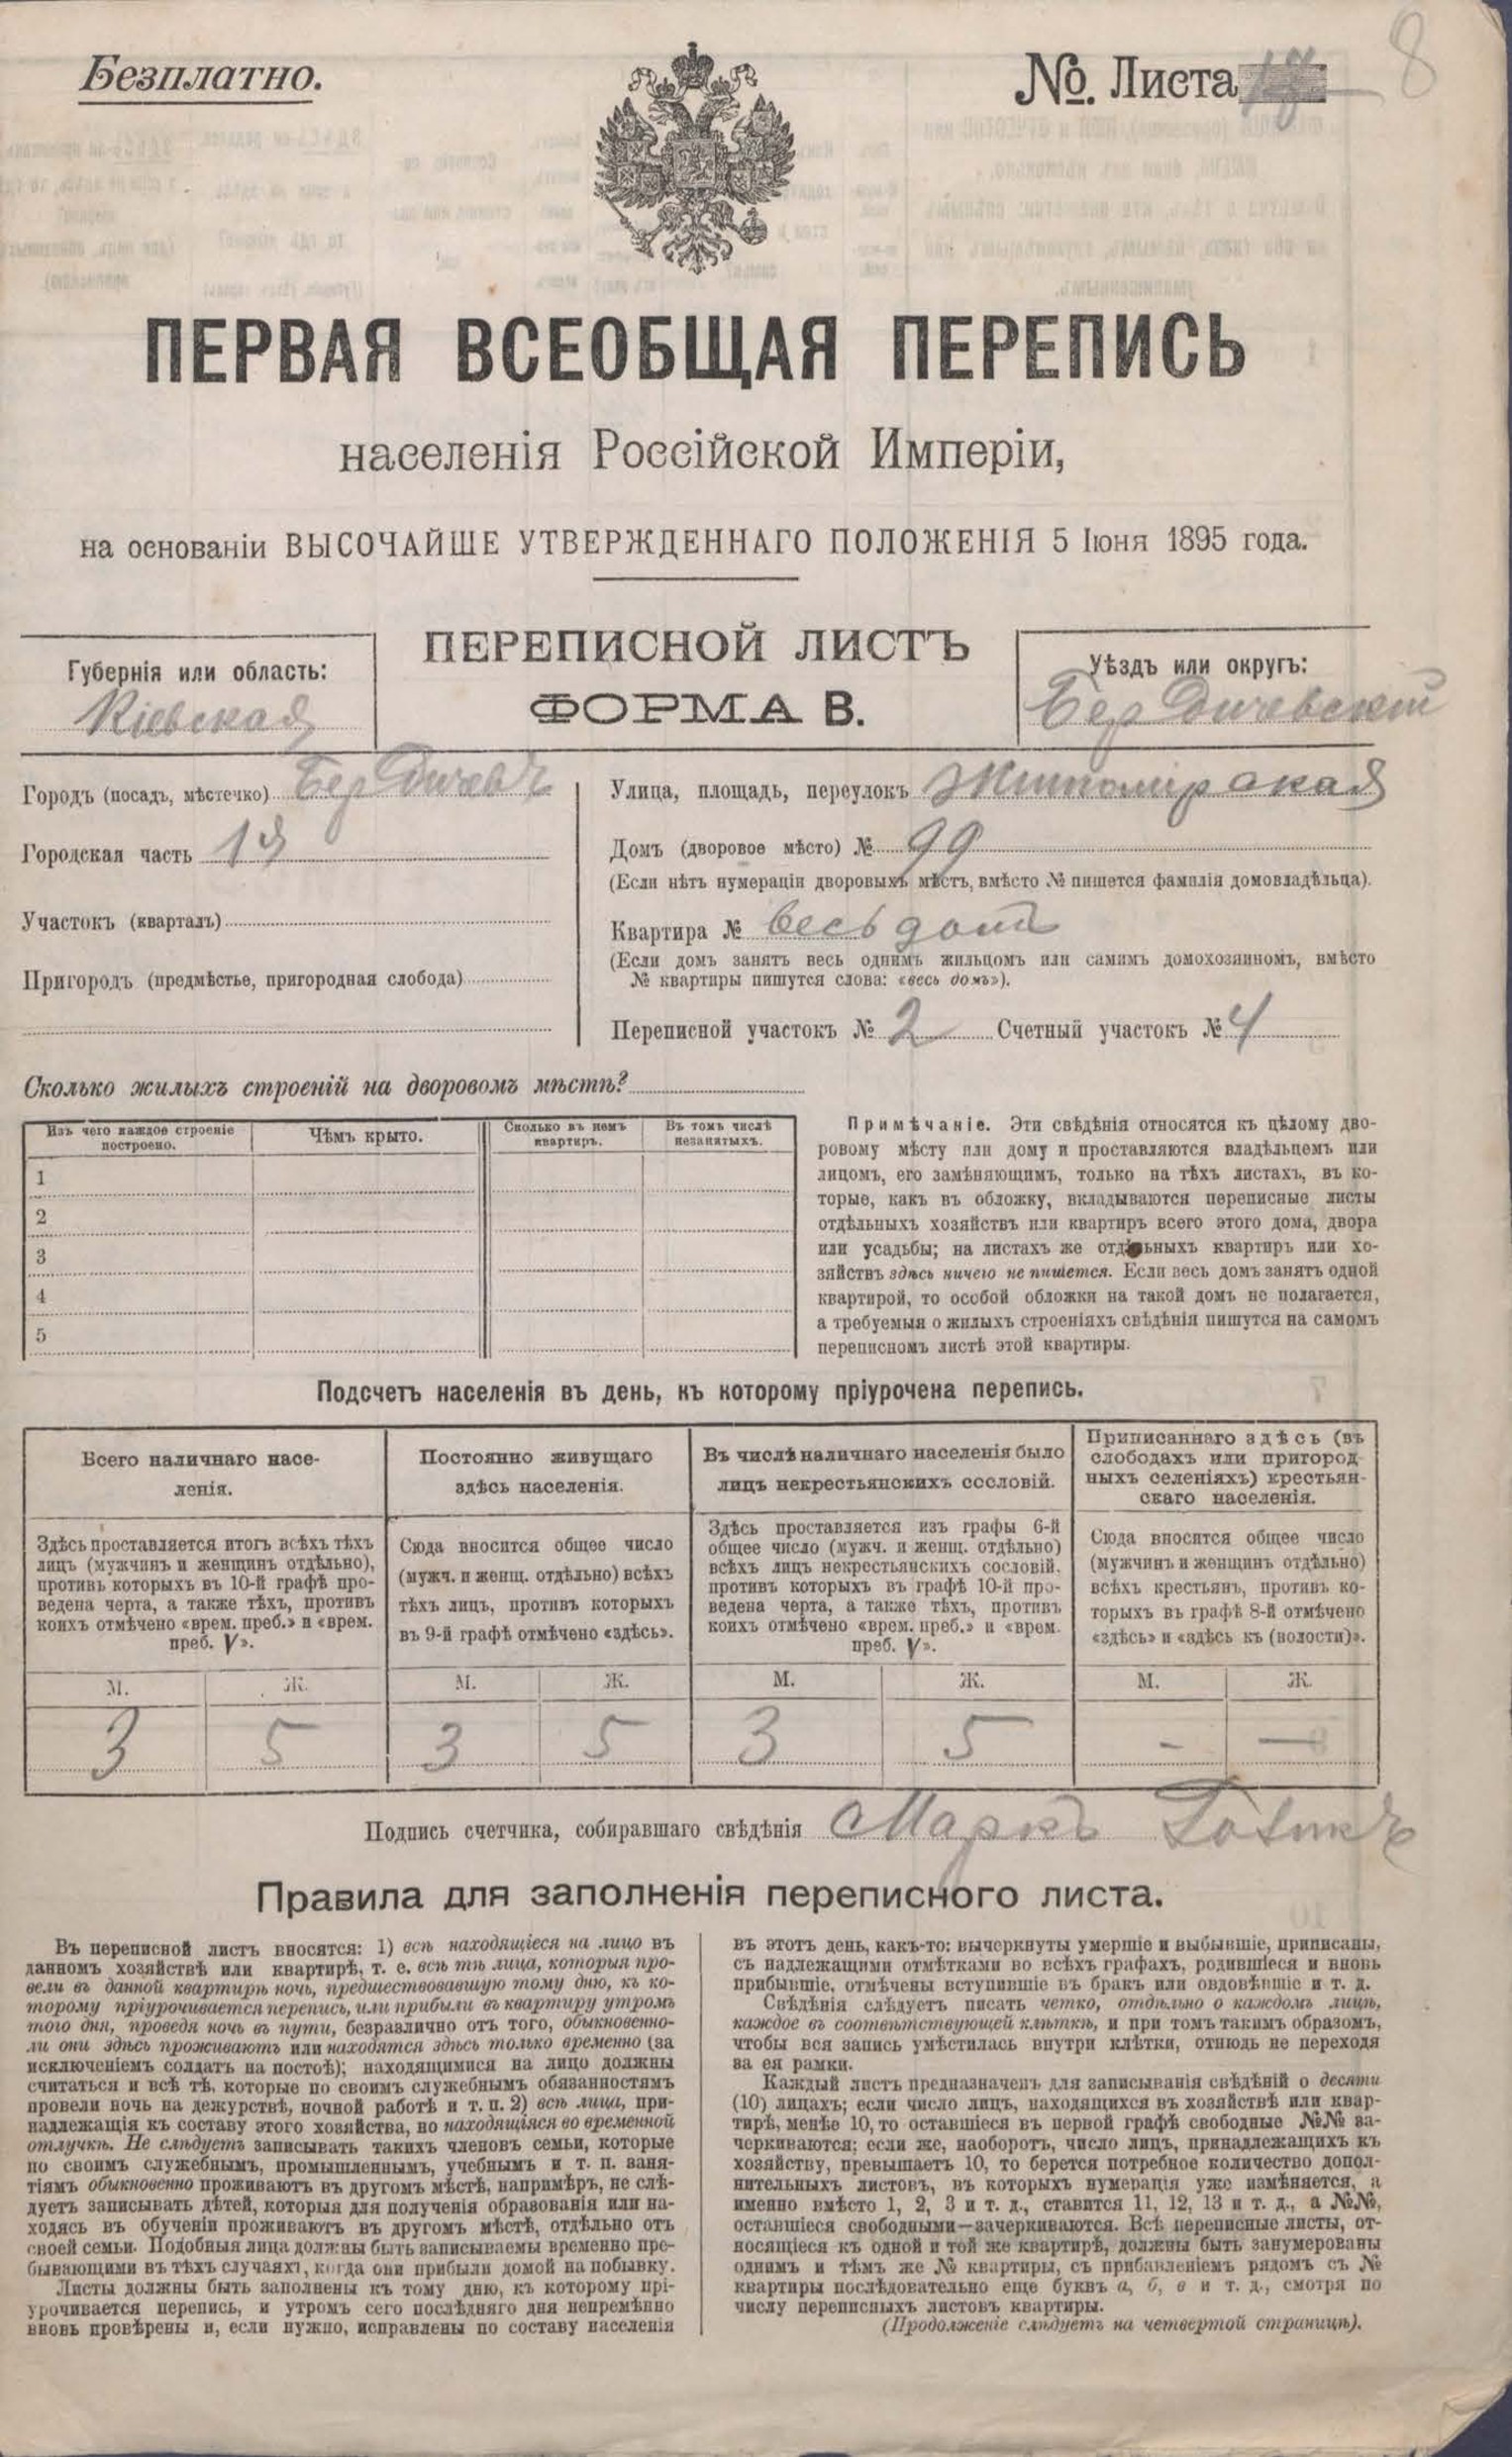 Безплатно.
№. Листа 8
ПЕРВАЯ ВСЕОБЩАЯ ПЕРЕПИСЬ
населенія Россійской Имперіи,
на основаніи ВЫСОЧАЙШЕ УТВЕРЖДЕННАГО ПОЛОЖЕНІЯ 5 Іюня 1895 года.
ПЕРЕПИСНОЙ ЛИСТЪ
ФОРМА В.
Губернія или область:
Кіевская
Уѣздъ или округъ:
Бердичевскій
Городъ (посадъ, мѣстечко) Бердичевъ
Городская часть 1я
Участокъ (кварталъ)
Пригородъ (предмѣстье, пригородная слобода)
Улица, площадь, переулокъ Житомирская
Домъ (дворовое мѣсто) № 99
(Если нѣтъ нумераціи дворовыхъ мѣстъ, вмѣсто № пишется фамилія домовладѣльца).
Квартира № весь домъ
(Если домъ занятъ весь однимъ жильцомъ или самимъ домохозяиномъ, вмѣсто
№ квартиры пишутся слова: «весь домъ»).
Переписной участокъ № 2 Счетный участокъ № 4
Сколько жилыхъ строеній на дворовомъ мѣстѣ?
Изъ чего каждое строеніе
построено.
Чѣмъ крыто.
Сколько въ немъ
квартиръ.
Въ томъ числѣ
незанятыхъ.
1
2
3
4
5
Примѣчаніе. Эти свѣдѣнія относятся къ цѣлому дво-
ровому мѣсту или дому и проставляются владѣльцемъ или
лицомъ, его замѣняющимъ, только на тѣхъ листахъ, въ ко-
торые, какъ въ обложку, вкладываются переписные листы
отдѣльныхъ хозяйствъ или квартиръ всего этого дома, двора
или усадьбы; на листахъ же отдѣльныхъ квартиръ или хо-
зяйствъ здѣсь ничего не пишется. Если весь домъ занятъ одной
квартирой, то особой обложки на такой домъ не полагается,
а требуемыя о жилыхъ строеніяхъ свѣдѣнія пишутся на самомъ
переписномъ листѣ этой квартиры.
Подсчетъ населенія въ день, къ которому пріурочена перепись.
Всего наличнаго насе-
ленія.
Здѣсь проставляется итогъ всѣхъ тѣхъ
лицъ (мужчинъ и женщинъ отдѣльно),
противъ которыхъ въ 10-й графѣ про-
ведена черта, а также тѣхъ, противъ
коихъ отмѣчено «врем. преб.» и «врем.
преб. V».
М. Ж.
3 5
Постоянно живущаго
здѣсь населенія.
Сюда вносится общее число
(мужч. и женщ. отдѣльно) всѣхъ
тѣхъ лицъ, противъ которыхъ
въ 9-й графѣ отмѣчено «здѣсь».
М. Ж.
3 5
Въ числѣ наличнаго населенія было
лицъ некрестьянскихъ сословій.
Здѣсь проставляется изъ графы 6-й
общее число (мужч. и женщ. отдѣльно)
всѣхъ лицъ некрестьянскихъ сословій,
противъ которыхъ въ графѣ 10-й про-
ведена черта, а также тѣхъ, противъ
коихъ отмѣчено «врем. преб.» и «врем.
преб. V».
М. Ж.
3 5
Приписаннаго здѣсь (въ
слободахъ или пригород-
ныхъ селеніяхъ) крестьян-
скаго населенія.
Сюда вносится общее число
(мужчинъ и женщинъ отдѣльно)
всѣхъ крестьянъ, противъ ко-
торыхъ въ графѣ 8-й отмѣчено
«здѣсь» и «здѣсь къ (волости)».
М. Ж.
- —
Подпись счетчика, собиравшаго свѣдѣнія Маркъ
Правила для заполненія переписного листа.
Въ переписной листъ вносятся: 1) всѣ находящіеся на лицо въ
данномъ хозяйствѣ или квартирѣ, т. е. всѣ тѣ лица, которыя про-
вели въ данной квартирѣ ночь, предшествовавшую тому дню, къ ко-
торому пріурочивается перепись, или прибыли въ квартиру утромъ
того дня, проведя ночь въ пути, безразлично отъ того, обыкновенно-
ли они здѣсь проживаютъ или находятся здѣсь только временно (за
исключеніемъ солдатъ на постоѣ); находящимися на лицо должны
считаться и всѣ тѣ, которые по своимъ служебнымъ обязанностямъ
провели ночь на дежурствѣ, ночной работѣ и т. п. 2) всѣ лица, при-
надлежащія къ составу этого хозяйства, но находящіяся во временной
отлучкѣ. Не слѣдуетъ записывать такихъ членовъ семьи, которые
по своимъ служебнымъ, промышленнымъ, учебнымъ и т. п. заня-
тіямъ обыкновенно проживаютъ въ другомъ мѣстѣ, напримѣръ, не слѣ-
дуетъ записывать дѣтей, которыя для полученія образованія или на-
ходясь въ обученіи проживаютъ въ другомъ мѣстѣ, отдѣльно отъ
своей семьи. Подобныя лица должны быть записываемы временно пре-
бывающими въ тѣхъ случаяхъ, когда они прибыли домой на побывку.
Листы должны быть заполнены къ тому дню, къ которому прі-
урочивается перепись, и утромъ сего послѣдняго дня непремѣнно
вновь провѣрены и, если нужно, исправлены по составу населенія
въ этотъ день, какъ-то: вычеркнуты умершіе и выбывшіе, приписаны,
съ надлежащими отмѣтками во всѣхъ графахъ, родившіеся и вновь
прибывшіе, отмѣчены вступившіе въ бракъ или овдовѣвшіе и т. д.
Свѣдѣнія слѣдуетъ писать четко, отдѣльно о каждомъ лицѣ,
каждое въ соотвѣтствующей клѣткѣ, и при томъ такимъ образомъ,
чтобы вся запись умѣстилась внутри клѣтки, отнюдь не переходя
за ея рамки.
Каждый листъ предназначенъ для записыванія свѣдѣній о десяти
(10) лицахъ; если число лицъ, находящихся въ хозяйствѣ или квар-
тирѣ, менѣе 10, то оставшіеся въ первой графѣ свободные №№ за-
черкиваются; если же, наоборотъ, число лицъ, принадлежащихъ къ
хозяйству, превышаетъ 10, то берется потребное количество допол-
нительныхъ листовъ, въ которыхъ нумерація уже измѣняется, а
именно вмѣсто 1, 2, 3 и т. д., ставится 11, 12, 13 и т. д., а №№,
оставшіеся свободными—зачеркиваются. Всѣ переписные листы, от-
носящіеся къ одной и той же квартирѣ, должны быть занумерованы
однимъ и тѣмъ же № квартиры, съ прибавленіемъ рядомъ съ №
квартиры послѣдовательно еще буквъ а, б, в и т. д., смотря по
числу переписныхъ листовъ квартиры.
(Продолженіе слѣдуетъ на четвертой страницѣ).